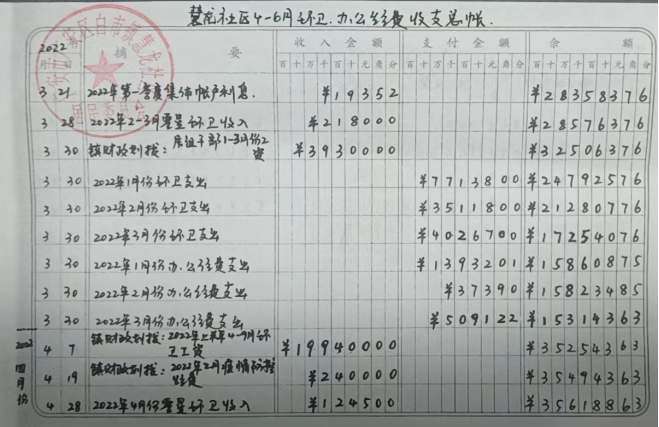 慧龙社区4-6月环卫.办公经费收支总帐.
2022 摘要 收入金额 支付金额 余额
月 百十万千百十元角分 百十万千百十元角分 百十万千百十元角分
3 21 2022年第一季度集体帐户利息. ¥19352 ¥28358376
3 28 2022年2-3月零星环卫收入 ¥218000 ¥28576376
3 30 镇财政划拨:居组干部1-3月份工资 ¥3930000 ¥32506376
3 30 2022年1月份环卫支出 ¥7713800 ¥24792576
3 30 2022年2月份环卫支出 ¥3511800 ¥21280776
3 30 2022年3月份环卫支出 ¥4026700 ¥17254076
3 30 2022年1月份办.公经费支出 ¥1393201 ¥15860875
3 30 2022年2月份办.公经费支出 ¥37390 ¥15823485
3 30 2022年3月份办.公经费支出 ¥509122 ¥15314363
2022 四月份
4 7 镇财政划拨:2022年上半年4-9月环卫工资 ¥19940000 ¥35254363
4 19 镇财政划拨:2022年2月疫情防控经费 ¥240000 ¥35494363
4 28 2022年4月份零星环卫收入 ¥124500 ¥35618863